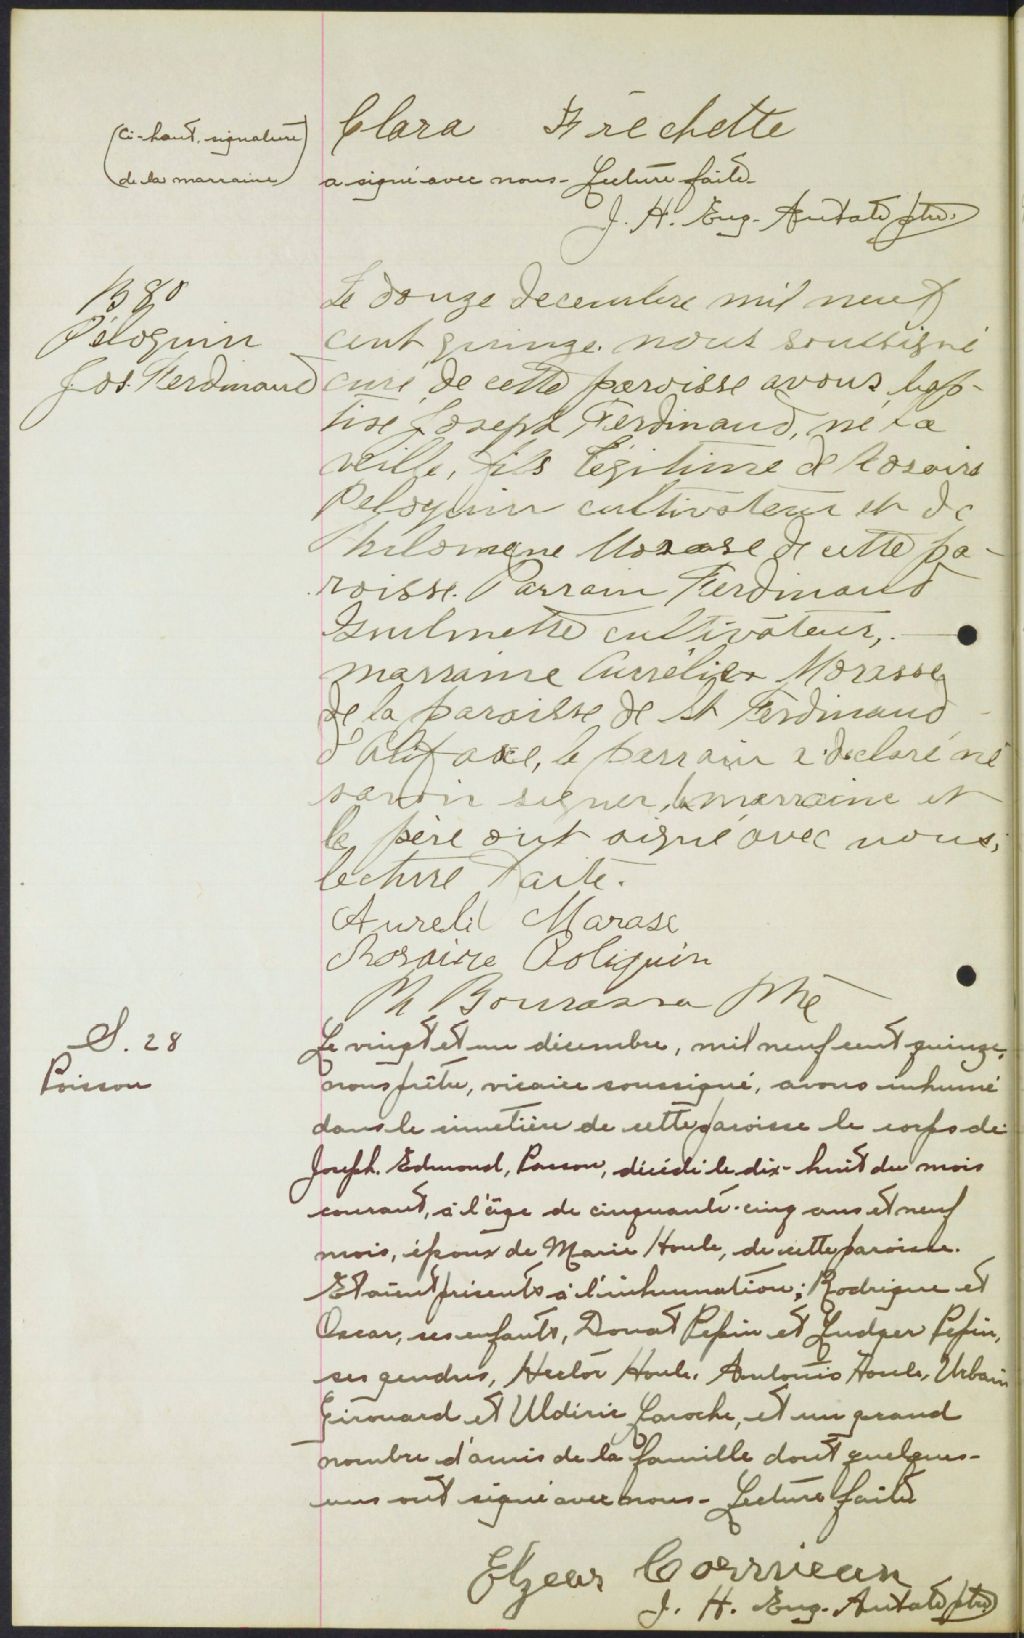 (Ci-haut, signature
de la marraine)
Clara Fréchette
a signé avec nous - Lecture faite.
J. H. Eug. ptre.
B 80
Péloquin
Jos. Ferdinand
Le douze decembre mil neuf
cent quinze. nous soussigné
curé de cette paroisse avons bap-
tisé Joseph Ferdinand, né la
veille, fils légitime de Rosaire
Peloquin cultivateur et de
Philomene Morasse de cette pa-
roisse. Parrain Ferdinand
cultivateur,
marraine Aurrélie Morasse
de la paroisse de St Ferdinand
d'Alifaxe, le parrain a declaré ne
savoir signer, la marraine et
le père ont signé avec nous,
lecture faite.
Aurelie Marase
Rosaire Poliquin
Ph Bourassa Ptre
S. 28
Poisson
Le vingt et un décembre, mil neuf cent quinze,
nous prêtre, vicaire soussigné, avons inhumé
dans le cimetière de cette paroisse le corps de
Joseph Edmond, Poisson, décédé le dix-huit du mois
courant, à l'âge de cinquante-cinq ans et neuf
mois, époux de Marie Houle, de cette paroisse.
Etaient présents à l'inhumation: Rodrigue et
Oscar, ses enfants, Donat Pepin et Ludger Pepin,
ses gendres, Hector Houle, Antonio Houle, Urbain
Girouard et Uldéric Laroche, et un grand
nombre d'amis de la famille dont quelques-
uns ont signé avec nous - Lecture faite
Elzear Corriveau
J. H. Eug. ptre